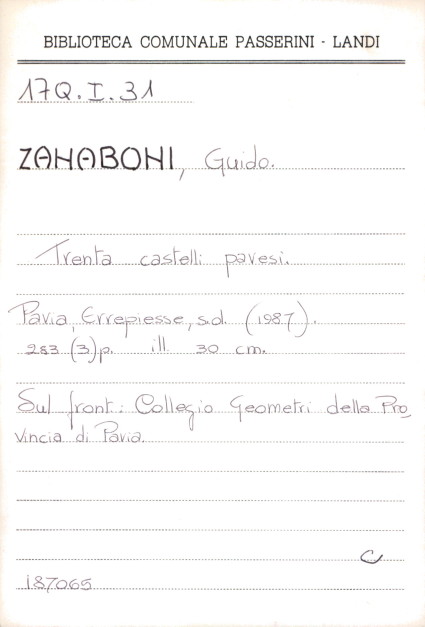 BIBLIOTECA COMUNALE PASSERINI - LANDI
17Q.I.31
ZANABONI, Guido.
Trenta castelli pavesi.
Pavia, Errepiesse, s.d. (1987).
283 (3)p. ill. 30 cm.
Sul front.: Collegio Geometri della Pro
vincia di Pavia.
C
187065